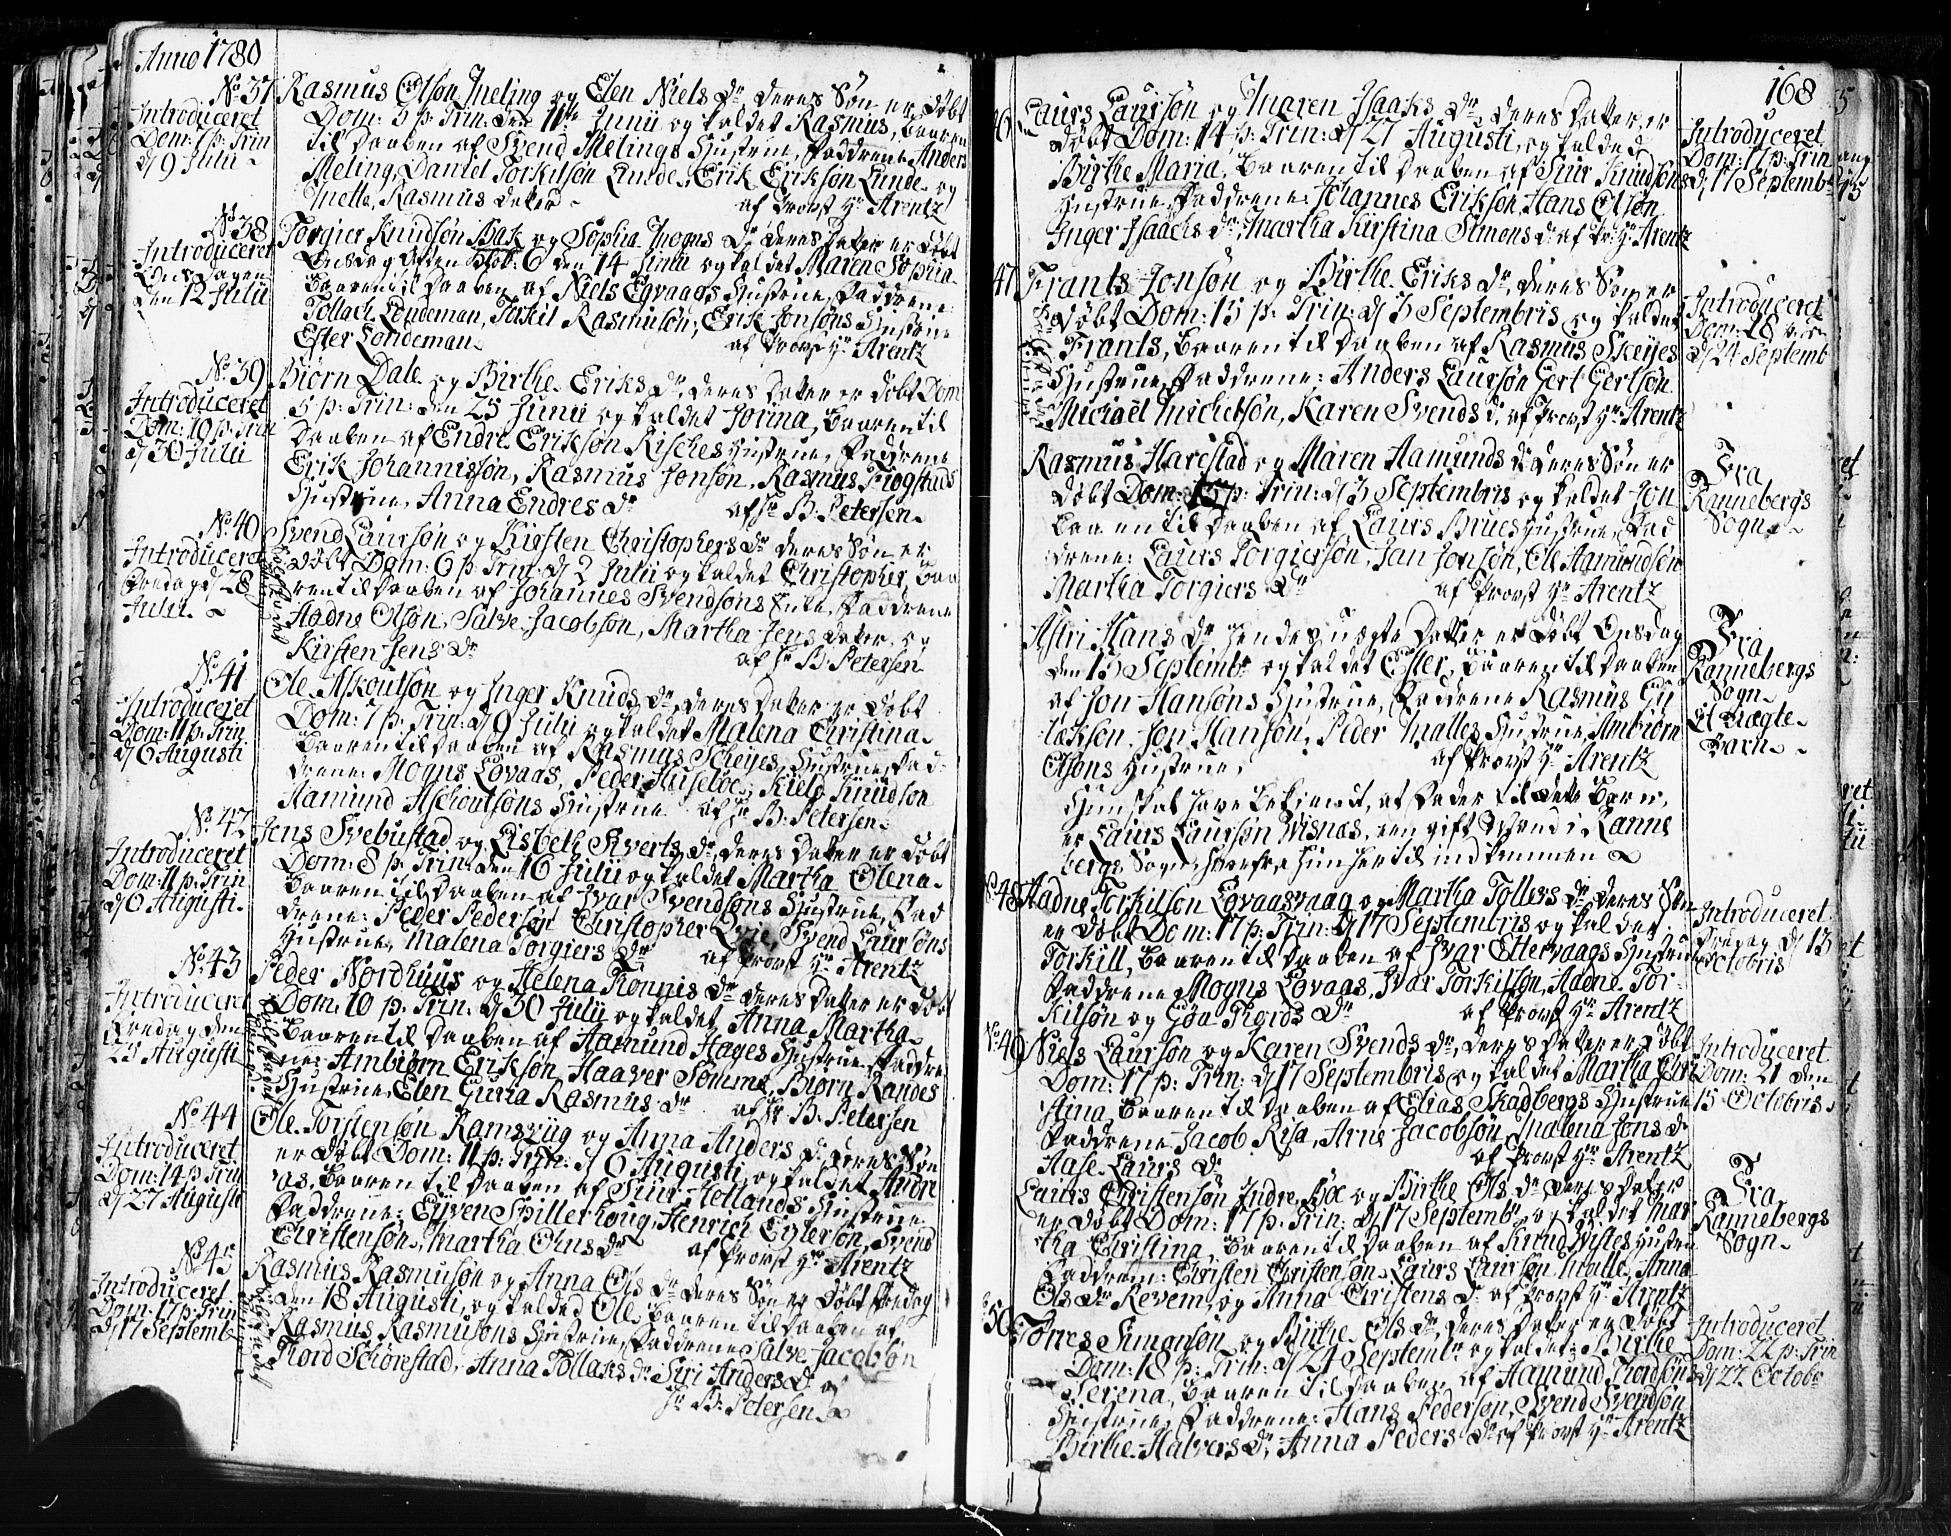 Anno 1780
No 37
Introduceret
Dom: 7 p: Trin
d/ 9 Julii
Rasmus Olsön Meling og Elen Niels Dr deres Søn er døbt
Dom: 3 p: Trin: den 11te Junii og kaldet Rasmus, baaren
til Daaben af Svend Melings Hustrue, Faddrene Anders
Meling, Daniel Torkilsen Lunde, Erik Erikson Lunde og
Mette Rasmus Dater af Provst Hr Arentz
No 38
Introduceret
Onsdagen
den 12 Julii
Torgier Knudsön Bak og Sophia Mogns Dr deres Dater er døbt
Onsdag Aften Klok: 6 den 14 Junii og kaldet Maren Sophia
baaren til Daaben af Niels Egvaags Hustrue, Faddrene:
Tollach Londeman, Torkil Rasmusön, Erik Jonsöns Hustrue
Ester Londeman af Provst Hr Arentz
No 39
Introduceret
Dom: 10 p: Trin
d/ 30 Julii
Biörn Dale og Birthe Eriks Dr, deres Dater er døbt Dom
5 p: Trin: den 25 Junii og kaldet Jorina, baaren til
Daaben af Endre Erikson Risches Hustrue, Faddrene
Erik Johannissön, Rasmus Jonsön, Rasmus Frogstads
Hustrue, Anna Endres Dr af Hr B. Petersen
No 40
Introduceret
Fredag d/ 28
Julii
Svend Laursön og Kirsten Christophers Dr deres Søn er
døbt Dom: 6 p: Trin: d/ 2 Julii og kaldet Christopher, baa
ren til Daaben af Johannes Svendsöns Enke, Faddrene
Aadne Olsön, Salve Jacobsön, Martha Jens Dater, og
Kirsten Jens Dr af Hr B. Petersen
No 41
Introduceret
Dom: 11 p: Trin
d/ 6 Augusti
Ole Askoutsön og Inger Knuds Dr, deres Dater er døbt
Dom: 7 p: Trin: d/ 9 Julii og kaldet Malena Christina
baaren til Daaben af Rasmus Scheies Hustrue, Fad=
drene: Mogns Lovaas, Peder Huseløe, Kield Knudson
Hamund Aschoutsöns Hustrue af Hr B. Petersen
No 42
Introduceret
Dom: 11 p: Trin
d/ 6 Augusti
Jens Svebustad og Lisbeth Sverts Dr, deres Dater er døbt
Dom: 8 p: Trin: den 16 Julii og kaldet Martha Olena
baaren til Daaben af Ivar Svendsöns Hustrue, Fad
drene: Peder Pedersön Christopher Svend Laursöns
Hustrue, Malena Torgiers Dr af Provst Hr Arentz
No 43
Introduceret
Fredag den
25 Augusti
Peder Nordhuus og Helena Ronnis Dr deres Dater er døbt
Dom: 10 p: Trin: d/ 30 Julii og kaldet Anna Martha
baaren til Daaben af Hamund Hages Hustrue, Faddre
ne: Ambiørn Erikson, Haaver Somme, Biørn Randes
Hustrue, Elen Guria Rasmus Dr af Hr B. Petersen
No 44
Introduceret
Dom: 14 p: Trin
d/ 27 Augusti
Ole Torstensön Ramsvig og Anna Anders Dr deres Søn
er døbt Dom: 11 p: Trin: d/ 6 Augusti og kaldet Andre
as, baaren til Daaben af Siur Hetlands Hustrue
Faddrene: Eiven Spillerhoug, Henrich Egiersön, Svend
Christensön, Martha Dr af Provst Hr Arentz
No 45
Introduceret
Dom: 17 p: Trin
d/ 17 Septemb
Rasmus Rasmusön og Anna Ols Dr deres Søn er døbt Fredag
den 18 Augusti, og kalded Ole, baaren til Daaben af
Rasmus Rasmusöns Hustrue, Faddrene Salve Jacobsön
Thord Schörestad, Anna Tollaks Dr Siri Anders Dr af
Hr B: Petersen
168
46
Laurs Laursön og Maren Isaaks Dr, deres Dater er
døbt Dom: 14 p: Trin: d/ 27 Augusti, og kalded
Birthe Maria, baaren til Daaben af Siur Knudsöns
Hustrue, Faddrene: Johannes Erikson, Hans Olsön
Inger Isaachs Dr, Martha Kirstina Simons Dr af Pr: Hr Arentz
Introduceret
Dom: 17 p: Trin
d/ 17 Septemb
47
Frants Jonsön og Birthe Eriks Dr, deres Søn er
døbt Dom: 15 p: Trin: d/ 3 Septembris og kaldet
Frants, baaren til Daaben af Rasmus Skeijes
Hustrue, Faddrene: Anders Laursön Gert Gertsön
Michael Michelsön, Karen Svends Dr, af Provst Hr Arentz
Introduceret
Dom: 18
d/ 24 Septemb
Rasmus Harestad og Maren Hamunds Dr deres Søn er
døbt Dom: 15 p: Trin: d/ 3 Septembris og kaldet Jon
baaren til Daaben af Laurs Brues Hustrue, Fad
drene: Laurs Torgiersön, Jan Jonsön, Ole Hamundsön
Martha Torgiers Dr af Provst Hr Arentz
Fra
Rannebergs
Sogn
Astri Hans Dr hendes uægte Datter er døbt Onsdag
den 13 Septembr og kaldet Ester, baaren til Daaben
af Jon Hansöns Hustrue, Faddrene Rasmus Gu
læksen, Jon Hansön, Peder Malles Hustrue, Ambiørn
Olsons Hustrue, af Provst Hr Arentz
Hun skal have bekiendt, at Fader til dette Barn,
er Laurs Laursön Visnæs, een gift Mand i Ranne
bergs Sogn, hvorfra hun her til ind kommen
Fra
Rannebergs
Sogn
Et Uægte
Barn
No 48
Aadne Torkilsön Lovaasvaag og Martha Tollevs Dr, deres Søn
er døbt Dom: 17 p: Trin: d/ 17 Septembris og kaldet
Torkill, baaren til Daaben af Ivar Ettervaags Hustrue
Faddrene Mogns Lovaas, Ivar Torkilsön, Aadne Tor-
kilsön og Göa Thords Dr af Provst Hr Arentz
Introduceret
Fredag d/ 13
Octobris
No 49
Niels Laursön og Karen Svends Dr, deres Dater er døbt
Dom: 17 p: Trin: d/ 17 Septembris og kaldet Martha Chri
stina, baaren til Daaben af Elias Skadbergs Hustrue
Faddrene Jacob Risa, Arne Jacobsön, Malena Jons Dr
Aase Laurs Dr af Provst Hr Arentz
Introduceret
Dom: 21 den
15 Octobris
Laurs Christensön Indre Bøe og Birthe Ols Dr deres Dater
er døbt Dom: 17 p: Trin: d/ 17 Septembr, og kaldet Mar
tha Christina, baaren til Daaben af Knud Vistes Husten
Faddrene: Christen Christenson, Laurs Laurson Anna
Ols Dr Revem, og Anna Christens Dr af Provst Hr Arentz
Fra
Rannebergs
Sogn
50
Torres Simonsön og Birthe Ols Dr, deres Dater er døbt
Dom: 18 p: Trin: d/ 24 Septembr og kaldet Birthe
Serena, baaren til Daaben af Hamund Thordsöns
Hustrue, Faddrene: Hans Pederson, Svend Svendsön
Birthe Halvers Dr, Anna Peders Dr af Provst Hr Arentz
Introduceret
Dom: 22 p: Trin
d/ 22 Octobr